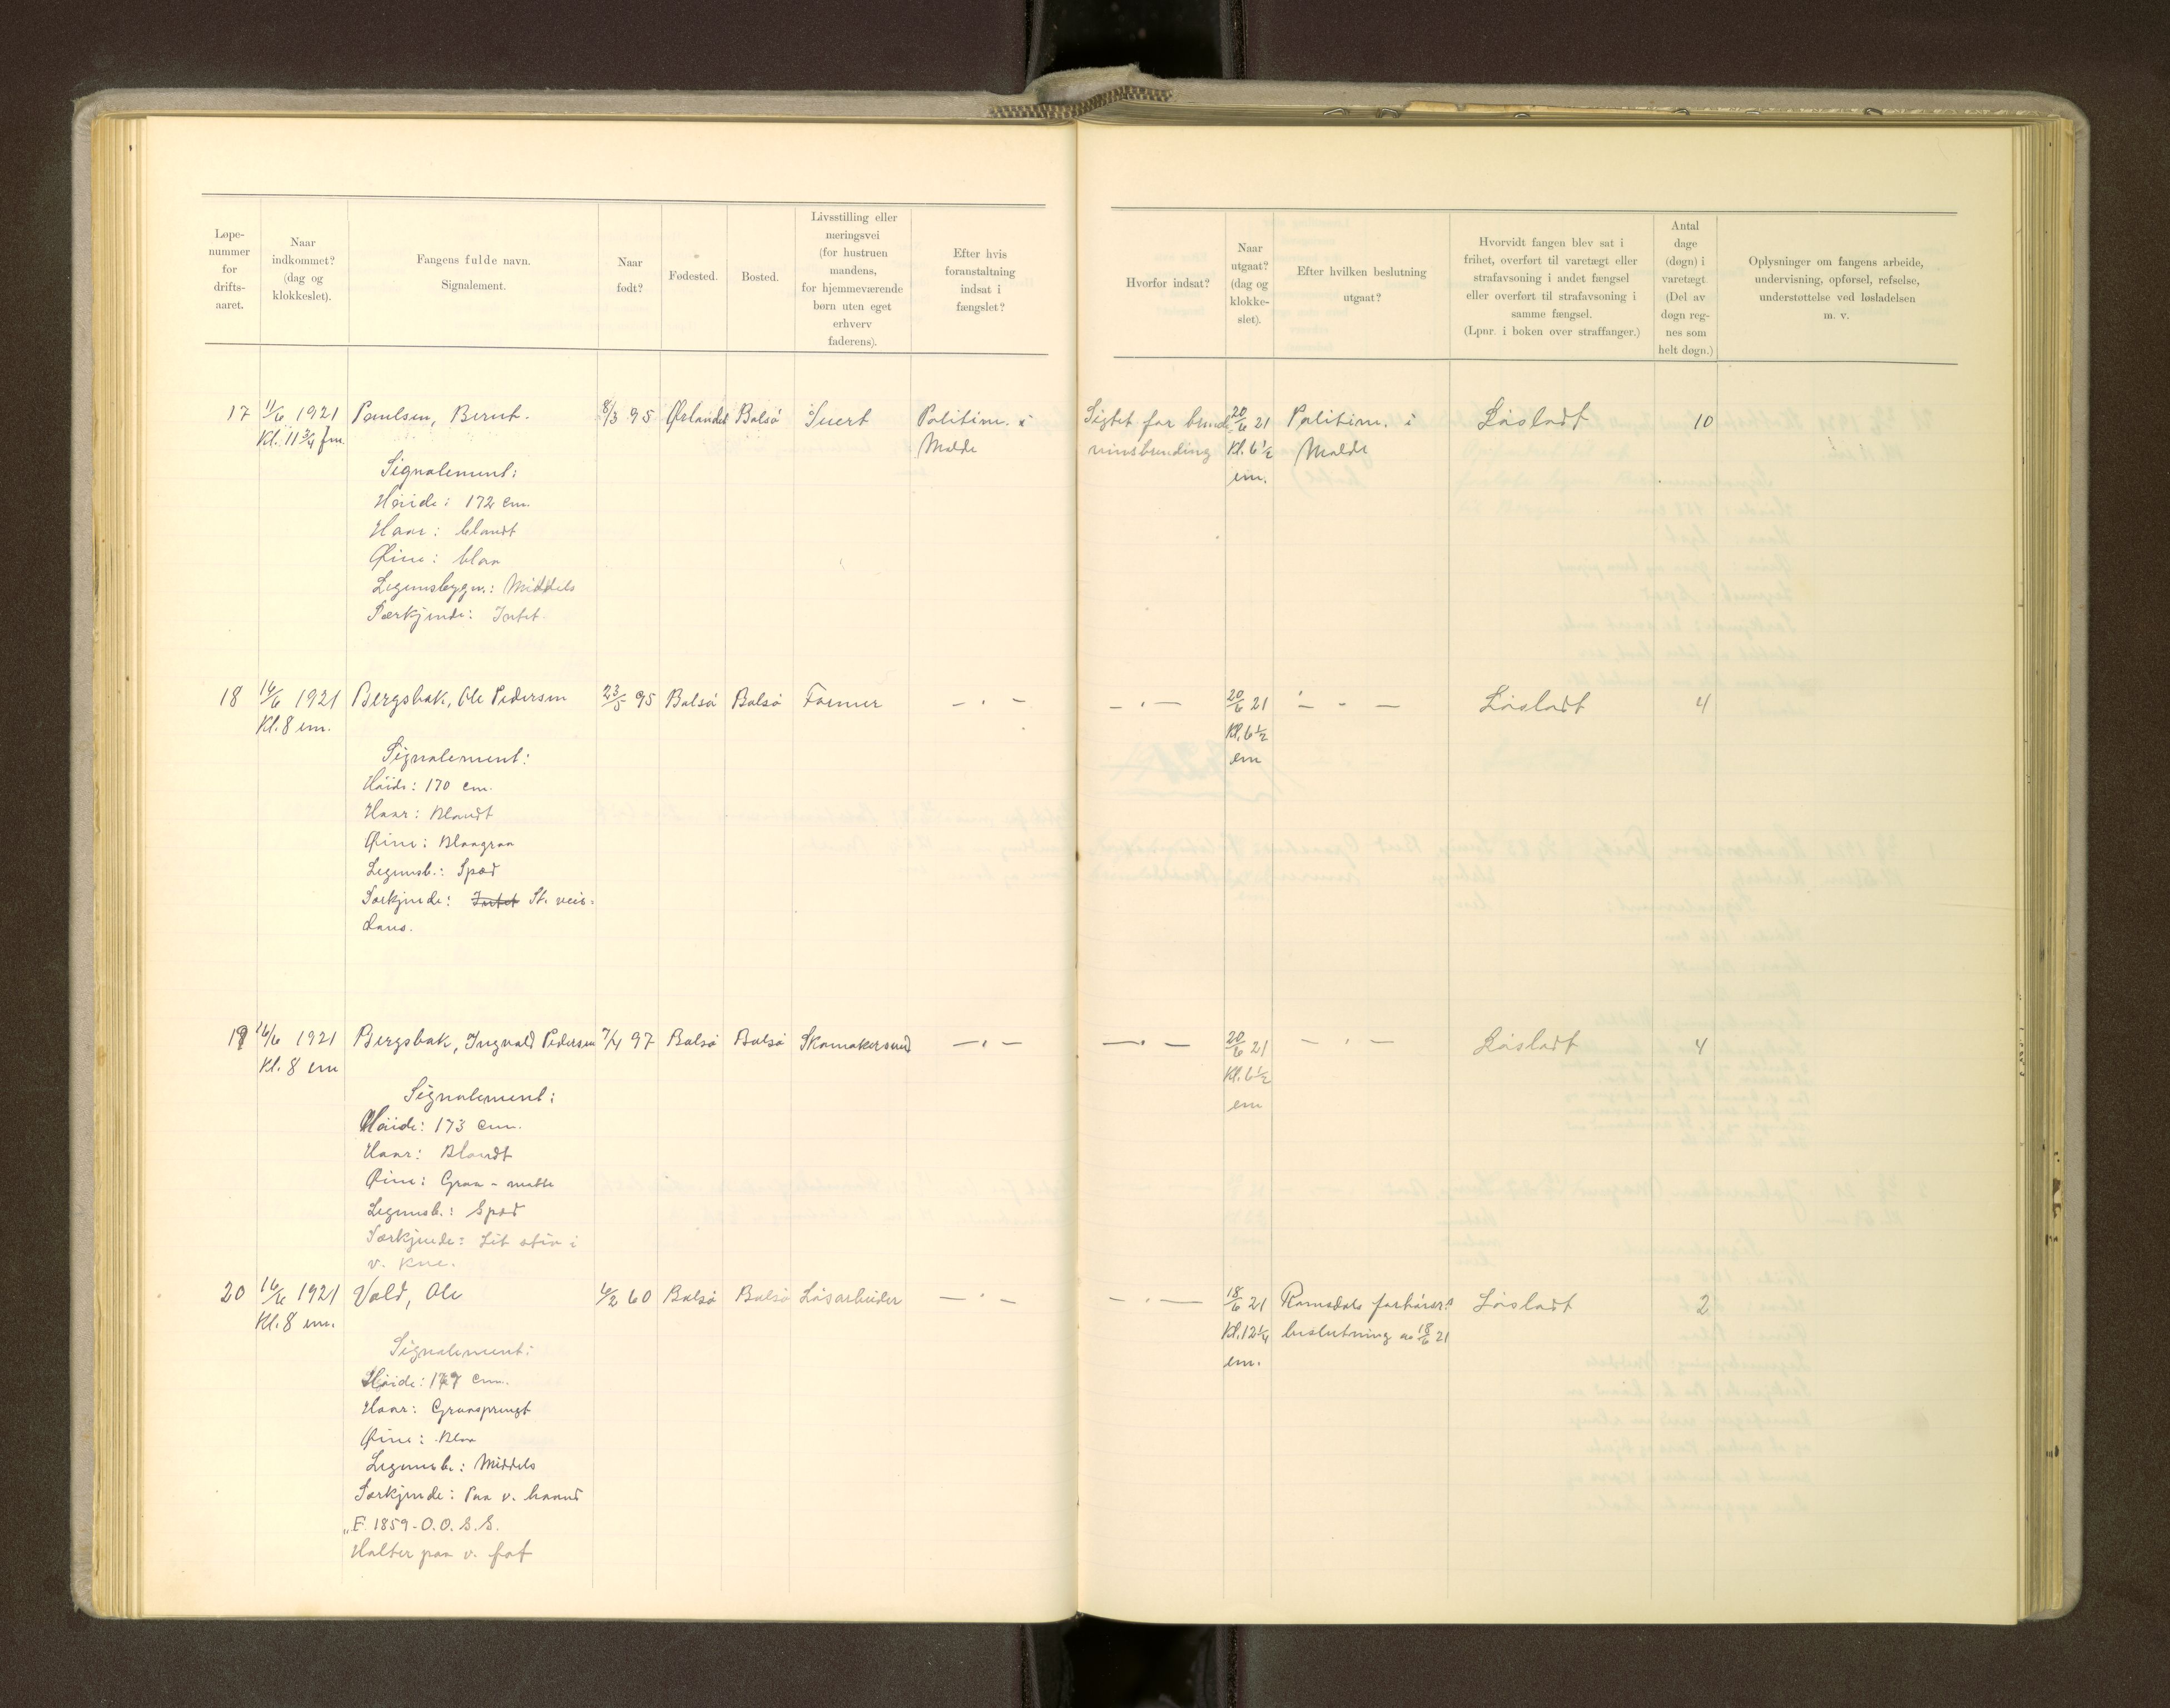 Løpe-
nummer
for
drifts-
aaret.
Naar
indkommet?
(dag og
klokkeslet).
Fangens fulde navn.
Signalement.
Naar
født?
Fødested.
Bosted.
Livsstilling eller
næringsvei
(for hustruen
mandens,
for hjemmeværende
børn uten eget
erhverv
faderens).
Efter hvis
foranstaltning
indsat i
fængslet?
Hvorfor indsat?
Naar
utgaat?
(dag og
klokke-
slet).
Efter hvilken beslutning
utgaat?
Hvorvidt fangen blev sat i
frihet, overført til varetægt eller
strafavsoning i andet fængsel
eller overført til strafavsoning i
samme fængsel.
(Lpnr. i boken over straffanger.)
Antal
dage
(døgn) i
varetægt
(Del av
døgn reg-
nes som
helt døgn.)
Oplysninger om fangens arbeide,
undervisning, opførsel, refselse,
understøttelse ved løsladelsen
m. v.
17 11/6 1921 Paulsen, Bernt. 8/3 95 Ørlandet Bolsø Svert Politim. i Sigtet for brænde- 20/6 21 Politim. i Løsladt 10
Kl. 11 3/4 fm. Molde vinsbrending Kl. 6 1/2 Molde
em.
Signalement:
Høide: 172 cm.
Haar: blondt
Øine: blaa
Legemsbygn.: Middels
Særkjende: Intet
18 16/6 1921 Bergsbak, Ole Pedersen 23/5 95 Bolsø Bolsø Former — " — — " — 20/6 21 — " — Løsladt 4
Kl. 8 em. Kl. 6 1/2
em
Signalement:
Høide: 170 cm.
Haar: Blondt
Øine: Blaagraa
Legemsb.: Spæd
Særkjende: Intet St. veis=
dans.
19 16/6 1921 Bergsbak, Ingvald Pedersen 7/4 97 Bolsø Bolsø Skomakersvend — " — — " — 20/6 21 — " — Løsladt 4
Kl. 8 em Kl. 6 1/2
em
Signalement:
Høide: 173 cm.
Haar: Blondt
Øine: Graa - matte
Legemsb.: Spæd
Særkjende: Lit stiv i
v. kne.
20 16/6 1921 Vold, Ole 6/2 60 Bolsø Bolsø Løsarbeider — " — — " — 18/6 21 Romsdals forhørsr.s Løsladt 2
Kl. 8 em. Kl. 12 1/4 beslutning av 18/6 21
em.
Signalement:
Høide: 177 cm.
Haar: Graasprengt
Øine: Blaa
Legemsb.: Middels
Særkjende: Paa v. haand
„F. 1859 - O. O. S. S.
Halter paa v. fot